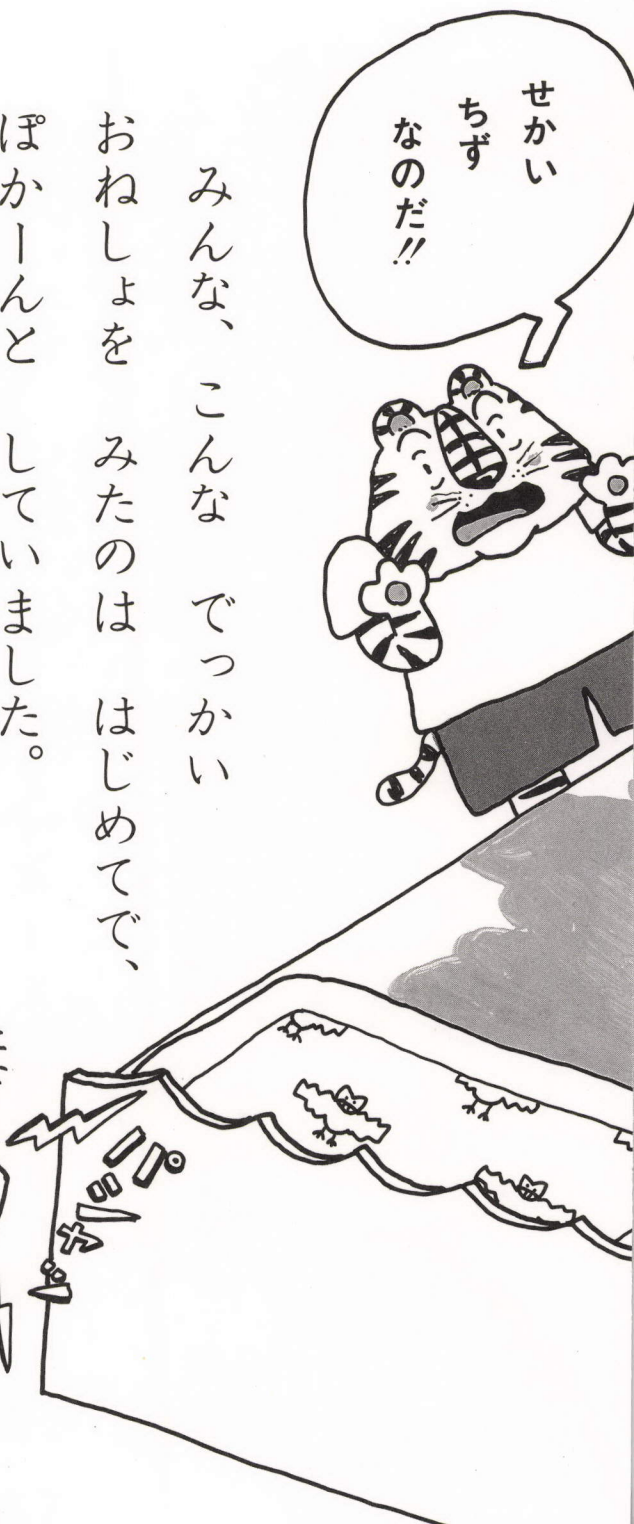 せかい
ちず
なのだ!!
みんな、こんな でっかい
おねしょを みたのは はじめてで、
ぽかーんと していました。